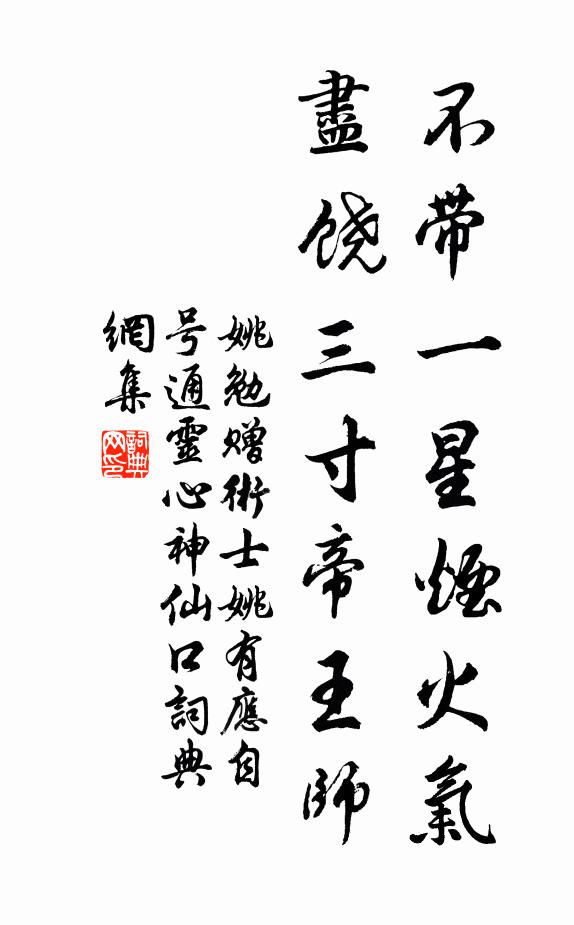 不带一星煙火氣
盡饶三寸帝王師
姚勉赠術士姚有應自
号通靈心神仙口詞典
網集
詞典
网印